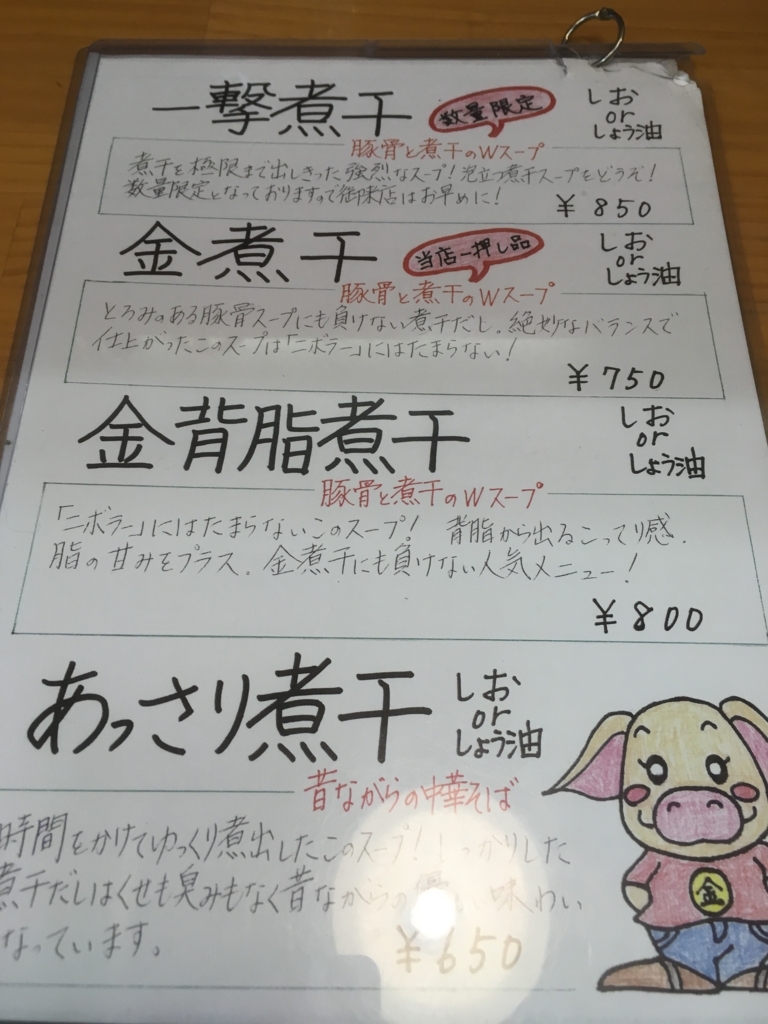 一撃煮干
数量限定
しお
or
しょう油
豚骨と煮干のWスープ
煮干を極限まで出しきった強烈なスープ!泡立つ煮干スープをどうぞ!
数量限定となっておりますので御来店はお早めに!
¥850
金煮干
当店一押し品
しお
or
しょう油
豚骨と煮干のWスープ
とろみのある豚骨スープにも負けない煮干だし、絶妙なバランスで
仕上がったこのスープは「ニボラー」にはたまらない!
¥750
金背脂煮干
しお
or
しょう油
豚骨と煮干のWスープ
「ニボラー」にはたまらないこのスープ! 背脂から出るこってり感、
脂の甘みをプラス、金煮干にも負けない人気メニュー!
¥800
あっさり煮干
しお
or
しょう油
昔ながらの中華そば
時間をかけてゆっくり煮出したこのスープ!しっかりした
煮干だしはくせも臭みもなく昔ながらの 味わい
なっています。
¥650
金